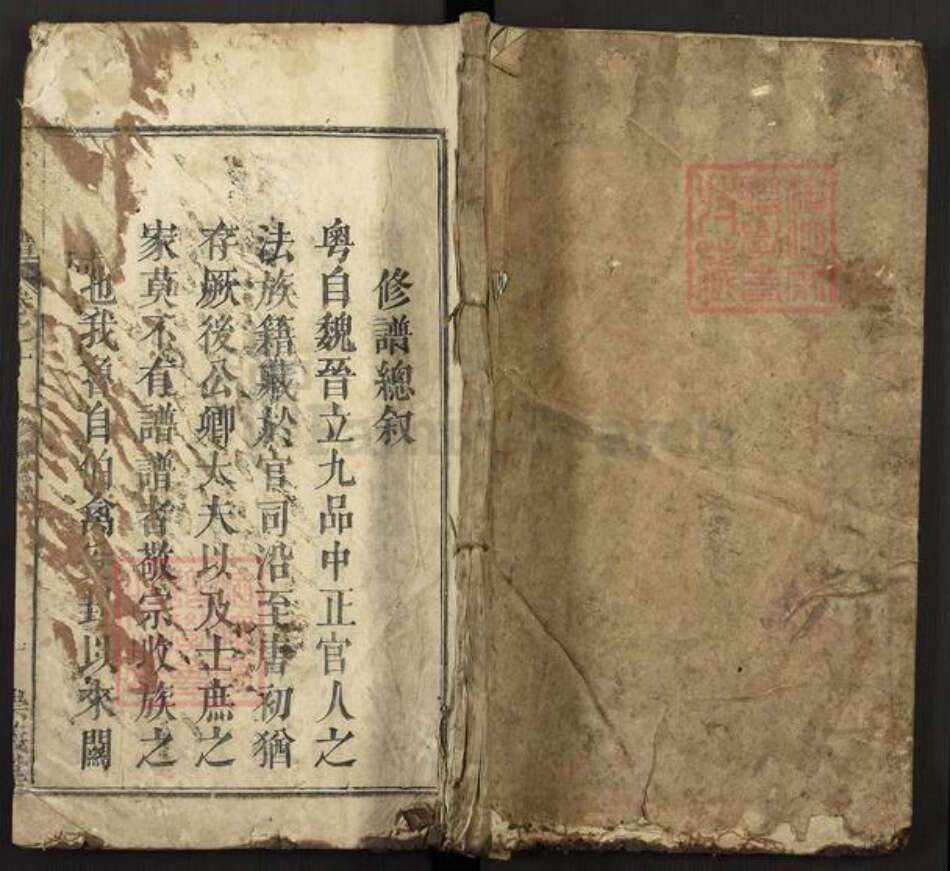 修譜總叙
粵自魏晉立九品中正官人之
法族籍藏於官司沿至唐初猶
存厥後公卿大夫以及士庶之
家莫不有譜譜者敬宗收族之
也我魯自伯禽封以來闢